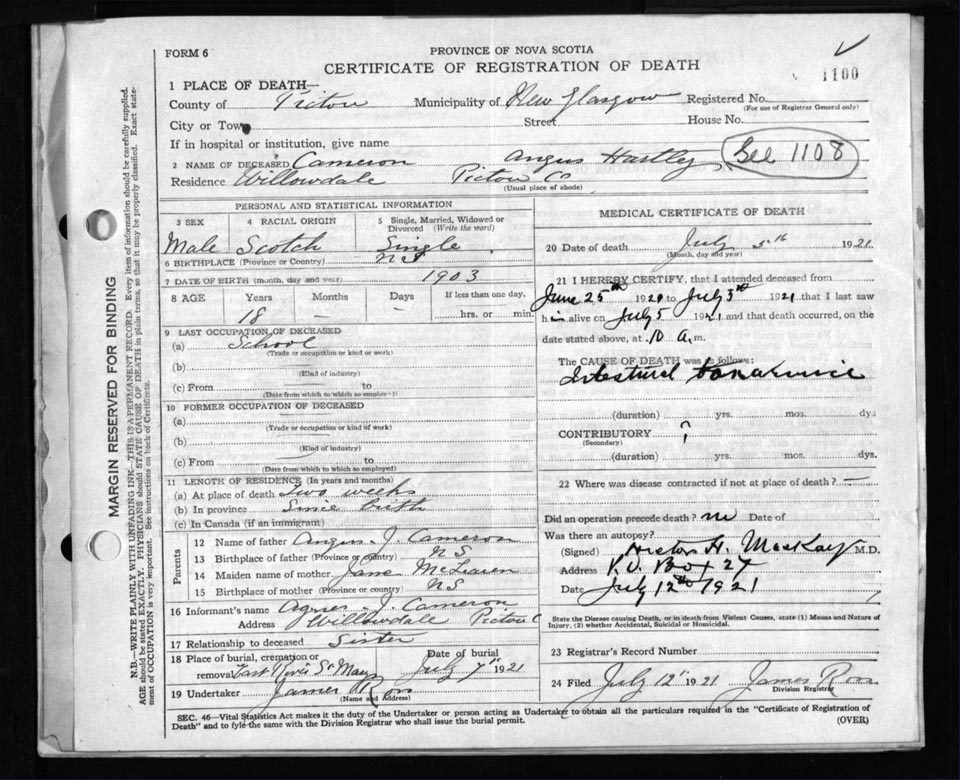 FORM 6
PROVINCE OF NOVA SCOTIA
CERTIFICATE OF REGISTRATION OF DEATH
1100
1 PLACE OF DEATH—
County of Pictou Municipality of New Glasgow Registered No.
(For use of Registrar General only)
City or Town Street House No.
If in hospital or institution, give name
2 NAME OF DECEASED Cameron Angus Hartley See 1108
Residence Willowdale Pictou Co
(Usual place of abode)
PERSONAL AND STATISTICAL INFORMATION
3 SEX 4 RACIAL ORIGIN 5 Single, Married, Widowed or Divorced (Write the word)
Male Scotch Single
6 BIRTHPLACE (Province or Country) N S
7 DATE OF BIRTH (month, day and year) 1903
8 AGE Years Months Days If less than one day,
18 — — hrs. or min.
9 LAST OCCUPATION OF DECEASED
(a) School
(Trade or occupation or kind or work)
(b)
(Kind of industry)
(c) From to
(Date from which to which so employed)
10 FORMER OCCUPATION OF DECEASED
(a)
(Trade or occupation or kind of work)
(b)
(Kind of industry)
(c) From to
(Date from which to which so employed)
11 LENGTH OF RESIDENCE (In years and months)
(a) At place of death two weeks
(b) In province Since birth
(c) In Canada (if an immigrant)
Parents
12 Name of father Angus J. Cameron
13 Birthplace of father (Province or country) N S
14 Maiden name of mother Jane McLearen
15 Birthplace of mother (Province or country) N S
16 Informant's name Agnes J. Cameron
Address Willowdale Pictou C
17 Relationship to deceased Sister
18 Place of burial, cremation or Date of burial
removal East River St Marys July 7" 1921
19 Undertaker James Ross
(Name and Address)
MEDICAL CERTIFICATE OF DEATH
20 Date of death July 5th 1921
(Month, day and year)
21 I HEREBY CERTIFY, that I attended deceased from
June 25th 1921 to July 5th 1921 that I last saw
him alive on July 5 1921 and that death occurred, on the
date stated above, at 10 A. m.
The CAUSE OF DEATH was as follows:
Intestinal
(duration) yrs. mos. dys
CONTRIBUTORY ?
(Secondary)
(duration) yrs. mos. dys.
22 Where was disease contracted if not at place of death? —
Did an operation precede death? no Date of
Was there an autopsy?
(Signed) Hector H. MacKay M.D.
Address P.O. Box 27
Date July 12th 1921
State the Disease causing Death, or in death from Violent Causes, state (1) Means and Nature of
Injury, (2) whether Accidental, Suicidal or Homicidal.
23 Registrar's Record Number
24 Filed July 12" 1921 James Ross
Division Registrar
SEC. 46—Vital Statistics Act makes it the duty of the Undertaker or person acting as Undertaker to obtain all the particulars required in the "Certificate of Registration of
Death" and to fyle the same with the Division Registrar who shall issue the burial permit.
(OVER)
MARGIN RESERVED FOR BINDING
N.B.—WRITE PLAINLY WITH UNFADING INK—THIS IS A PERMANENT RECORD. Every item of information should be carefully supplied.
AGE should be stated EXACTLY. PHYSICIANS should STATE CAUSE OF DEATH in plain terms, so that it may be properly classified. Exact state-
ment of OCCUPATION is very important. See instructions on back of Certificate.